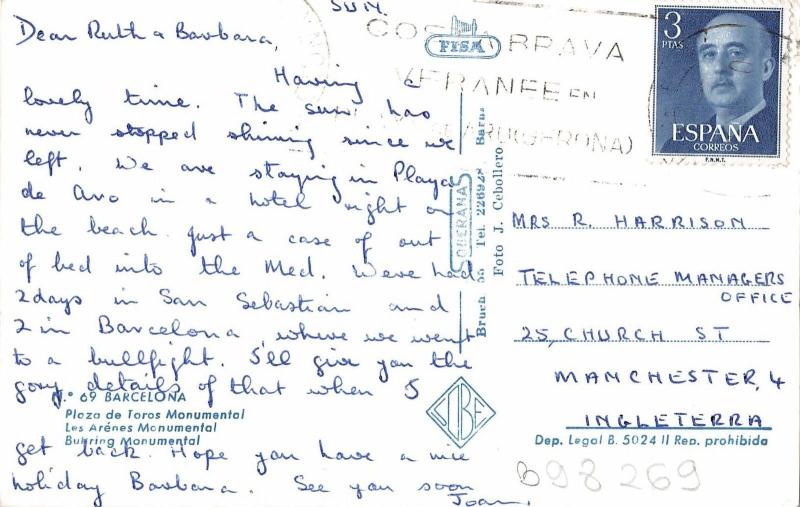 SUN.
Dear Ruth & Barbara,
Having a
lovely time. The sun has
never stopped shining since we
left. We are staying in Playa
de Aro in a hotel right on
the beach. just a case of out
of bed into the Med. We've had
2 days in San Sebastian and
2 in Barcelona, where we went
to a bullfight. I'll give you the
gory details of that when I
get back. Hope you have a nice
holiday Barbara. See you soon
Joan.
N.º 69 BARCELONA
Plaza de Toros Monumental
Les Arénes Monumental
Bullring Monumental
FISA
SOBERANAS
Bruch 55 Tel. 226924 Barna
Foto J. Cebollero
SCBE
COSTA BRAVA
VERANEE EN
(GERONA)
3
PTAS
ESPAÑA
CORREOS
F.N.M.T.
MRS R. HARRISON
TELEPHONE MANAGERS
OFFICE
25, CHURCH ST
MANCHESTER, 4
INGLETERRA
Dep. Legal B. 5024 II Rep. prohibida
B98269